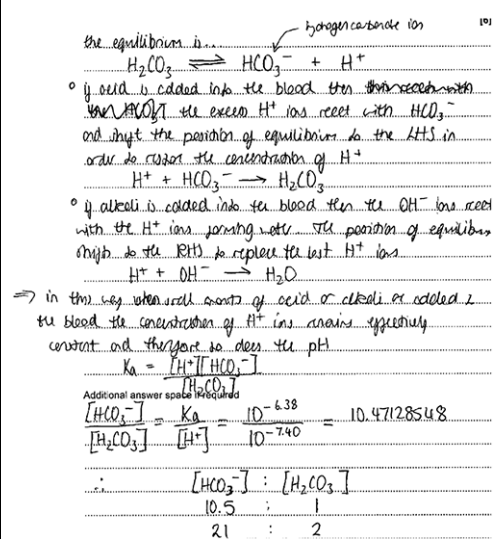 hydrogencarbonate ion
[9]
the equilibrium is...
H₂CO₃ ⇌ HCO₃⁻ + H⁺
° if acid is added into the blood then
the excess H⁺ ions react with HCO₃⁻
and shift the position of equilibrium to the LHS in
order to restore the concentration of H⁺
H⁺ + HCO₃⁻ → H₂CO₃
° if alkali is added into the blood then the OH⁻ ions react
with the H⁺ ions forming water. The position of equilibrium
shifts to the RHS to replace the lost H⁺ ions
H⁺ + OH⁻ → H₂O
⇒ in this way when small amounts of acid or alkali are added 2
the blood the concentration of H⁺ ions remains effectively
constant and therefore so does the pH
Ka = [H⁺][HCO₃⁻] / [H₂CO₃]
Additional answer space if required
[HCO₃⁻] / [H₂CO₃] = Ka / [H⁺] = 10^-6.38 / 10^-7.40 = 10.47128548
∴ [HCO₃⁻] : [H₂CO₃]
10.5 : 1
21 : 2